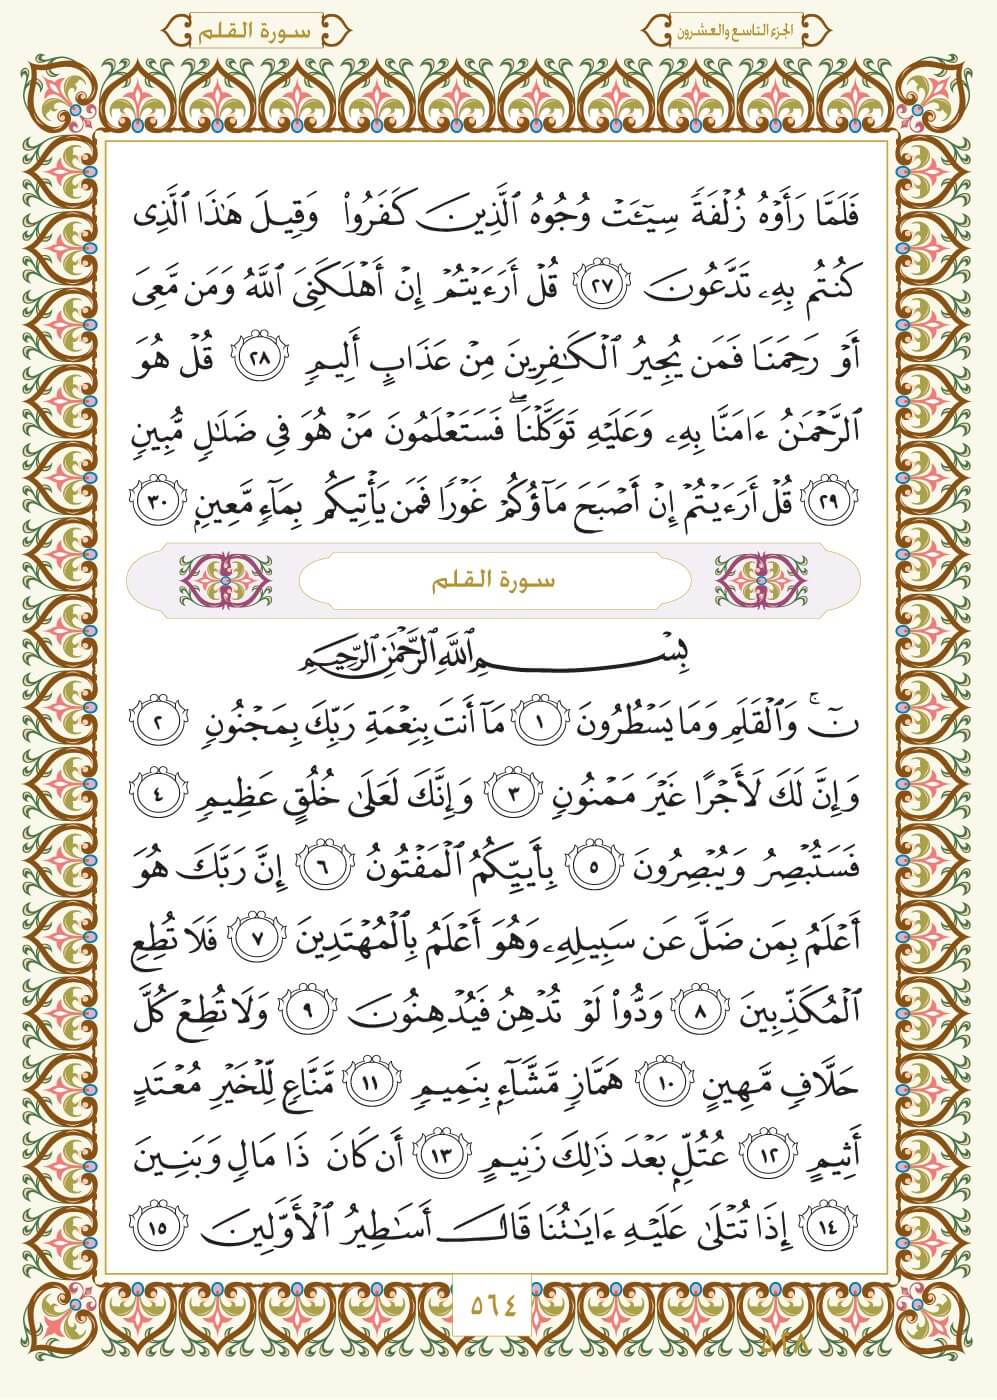 الجزء التاسع والعشرون
سورة القلم
فَلَمَّا رَأَوْهُ زُلْفَةً سِيٓـَٔتْ وُجُوهُ ٱلَّذِينَ كَفَرُوا۟ وَقِيلَ هَـٰذَا ٱلَّذِى
كُنتُم بِهِۦ تَدَّعُونَ ٢٧ قُلْ أَرَءَيْتُمْ إِنْ أَهْلَكَنِىَ ٱللَّهُ وَمَن مَّعِىَ
أَوْ رَحِمَنَا فَمَن يُجِيرُ ٱلْكَـٰفِرِينَ مِنْ عَذَابٍ أَلِيمٍ ٢٨ قُلْ هُوَ
ٱلرَّحْمَـٰنُ ءَامَنَّا بِهِۦ وَعَلَيْهِ تَوَكَّلْنَا ۖ فَسَتَعْلَمُونَ مَنْ هُوَ فِى ضَلَـٰلٍ مُّبِينٍ
٢٩ قُلْ أَرَءَيْتُمْ إِنْ أَصْبَحَ مَآؤُكُمْ غَوْرًا فَمَن يَأْتِيكُم بِمَآءٍ مَّعِينٍۭ ٣٠
سورة القلم
بِسْمِ ٱللَّهِ ٱلرَّحْمَـٰنِ ٱلرَّحِيمِ
نٓ ۚ وَٱلْقَلَمِ وَمَا يَسْطُرُونَ ١ مَآ أَنتَ بِنِعْمَةِ رَبِّكَ بِمَجْنُونٍ ٢
وَإِنَّ لَكَ لَأَجْرًا غَيْرَ مَمْنُونٍ ٣ وَإِنَّكَ لَعَلَىٰ خُلُقٍ عَظِيمٍ ٤
فَسَتُبْصِرُ وَيُبْصِرُونَ ٥ بِأَييِّكُمُ ٱلْمَفْتُونُ ٦ إِنَّ رَبَّكَ هُوَ
أَعْلَمُ بِمَن ضَلَّ عَن سَبِيلِهِۦ وَهُوَ أَعْلَمُ بِٱلْمُهْتَدِينَ ٧ فَلَا تُطِعِ
ٱلْمُكَذِّبِينَ ٨ وَدُّوا۟ لَوْ تُدْهِنُ فَيُدْهِنُونَ ٩ وَلَا تُطِعْ كُلَّ
حَلَّافٍ مَّهِينٍ ١٠ هَمَّازٍ مَّشَّآءٍۭ بِنَمِيمٍ ١١ مَّنَّاعٍ لِّلْخَيْرِ مُعْتَدٍ
أَثِيمٍ ١٢ عُتُلٍّۭ بَعْدَ ذَٰلِكَ زَنِيمٍ ١٣ أَن كَانَ ذَا مَالٍ وَبَنِينَ
١٤ إِذَا تُتْلَىٰ عَلَيْهِ ءَايَـٰتُنَا قَالَ أَسَـٰطِيرُ ٱلْأَوَّلِينَ ١٥
٥٦٤